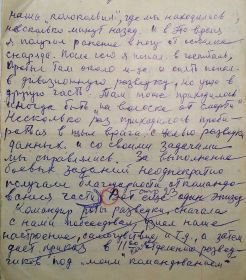 нами "колокольня", где мы находились
несколько минут назад. И в это время
я получил ранение в ногу от осколка
снаряда. После чего я попал в госпиталь,
провел там около м-ца и опять попал
в дивизионную разведку, но уже в
другую часть. Там тоже приходилось
иногда быть на волоске от смерти.
Несколько раз приходилось проби-
раться в тыл врага с целью разведки
данных. и со своими задачами
мы справлялись. За выполнение
боевых заданий неоднократно
получали благодарности от командо-
вания части. Вот еще один эпизод
Командир роты разведки, сначала
с нами побеседовал, узнал наше
настроение, самочувствие и т.д., а затем
дает приказ в 11 отделению развед-
чиков под "моим командованием"